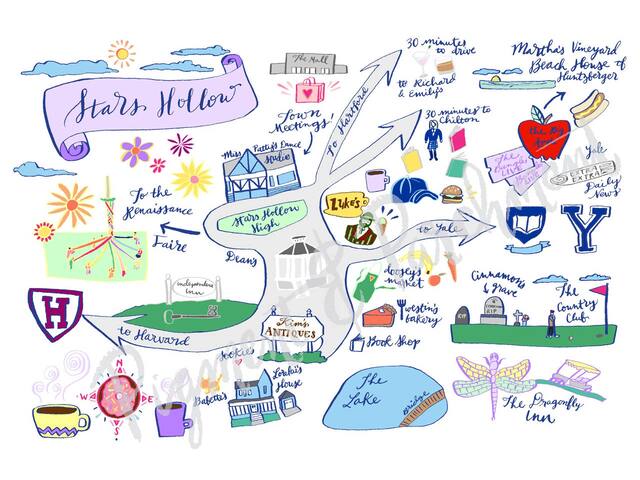 Stars Hollow
The Mall
Town
Meetings!
Miss Patty's Dance
Studio
To Hartford
30 minutes
to drive
to Richard
& Emily's
30 minutes to
Chilton
Martha's Vineyard
Beach House of
Huntzberger
the Big
The Bangles
LIVE
Yale
EXTRA EXTRA
Daily
News
To the
Renaissance
Faire
Stars Hollow
High
Luke's
to Yale
Y
Dean's
independence
inn
doosey's
market
H
to Harvard
Kim's
ANTIQUES
westin's
bakery
Book Shop
Cinnamon's
Grave
RIP
RIP
The
Country
Club
N
W
E
S
Babette's
Lorelai's
House
The
Lake
Bridge
The Dragonfly
Inn